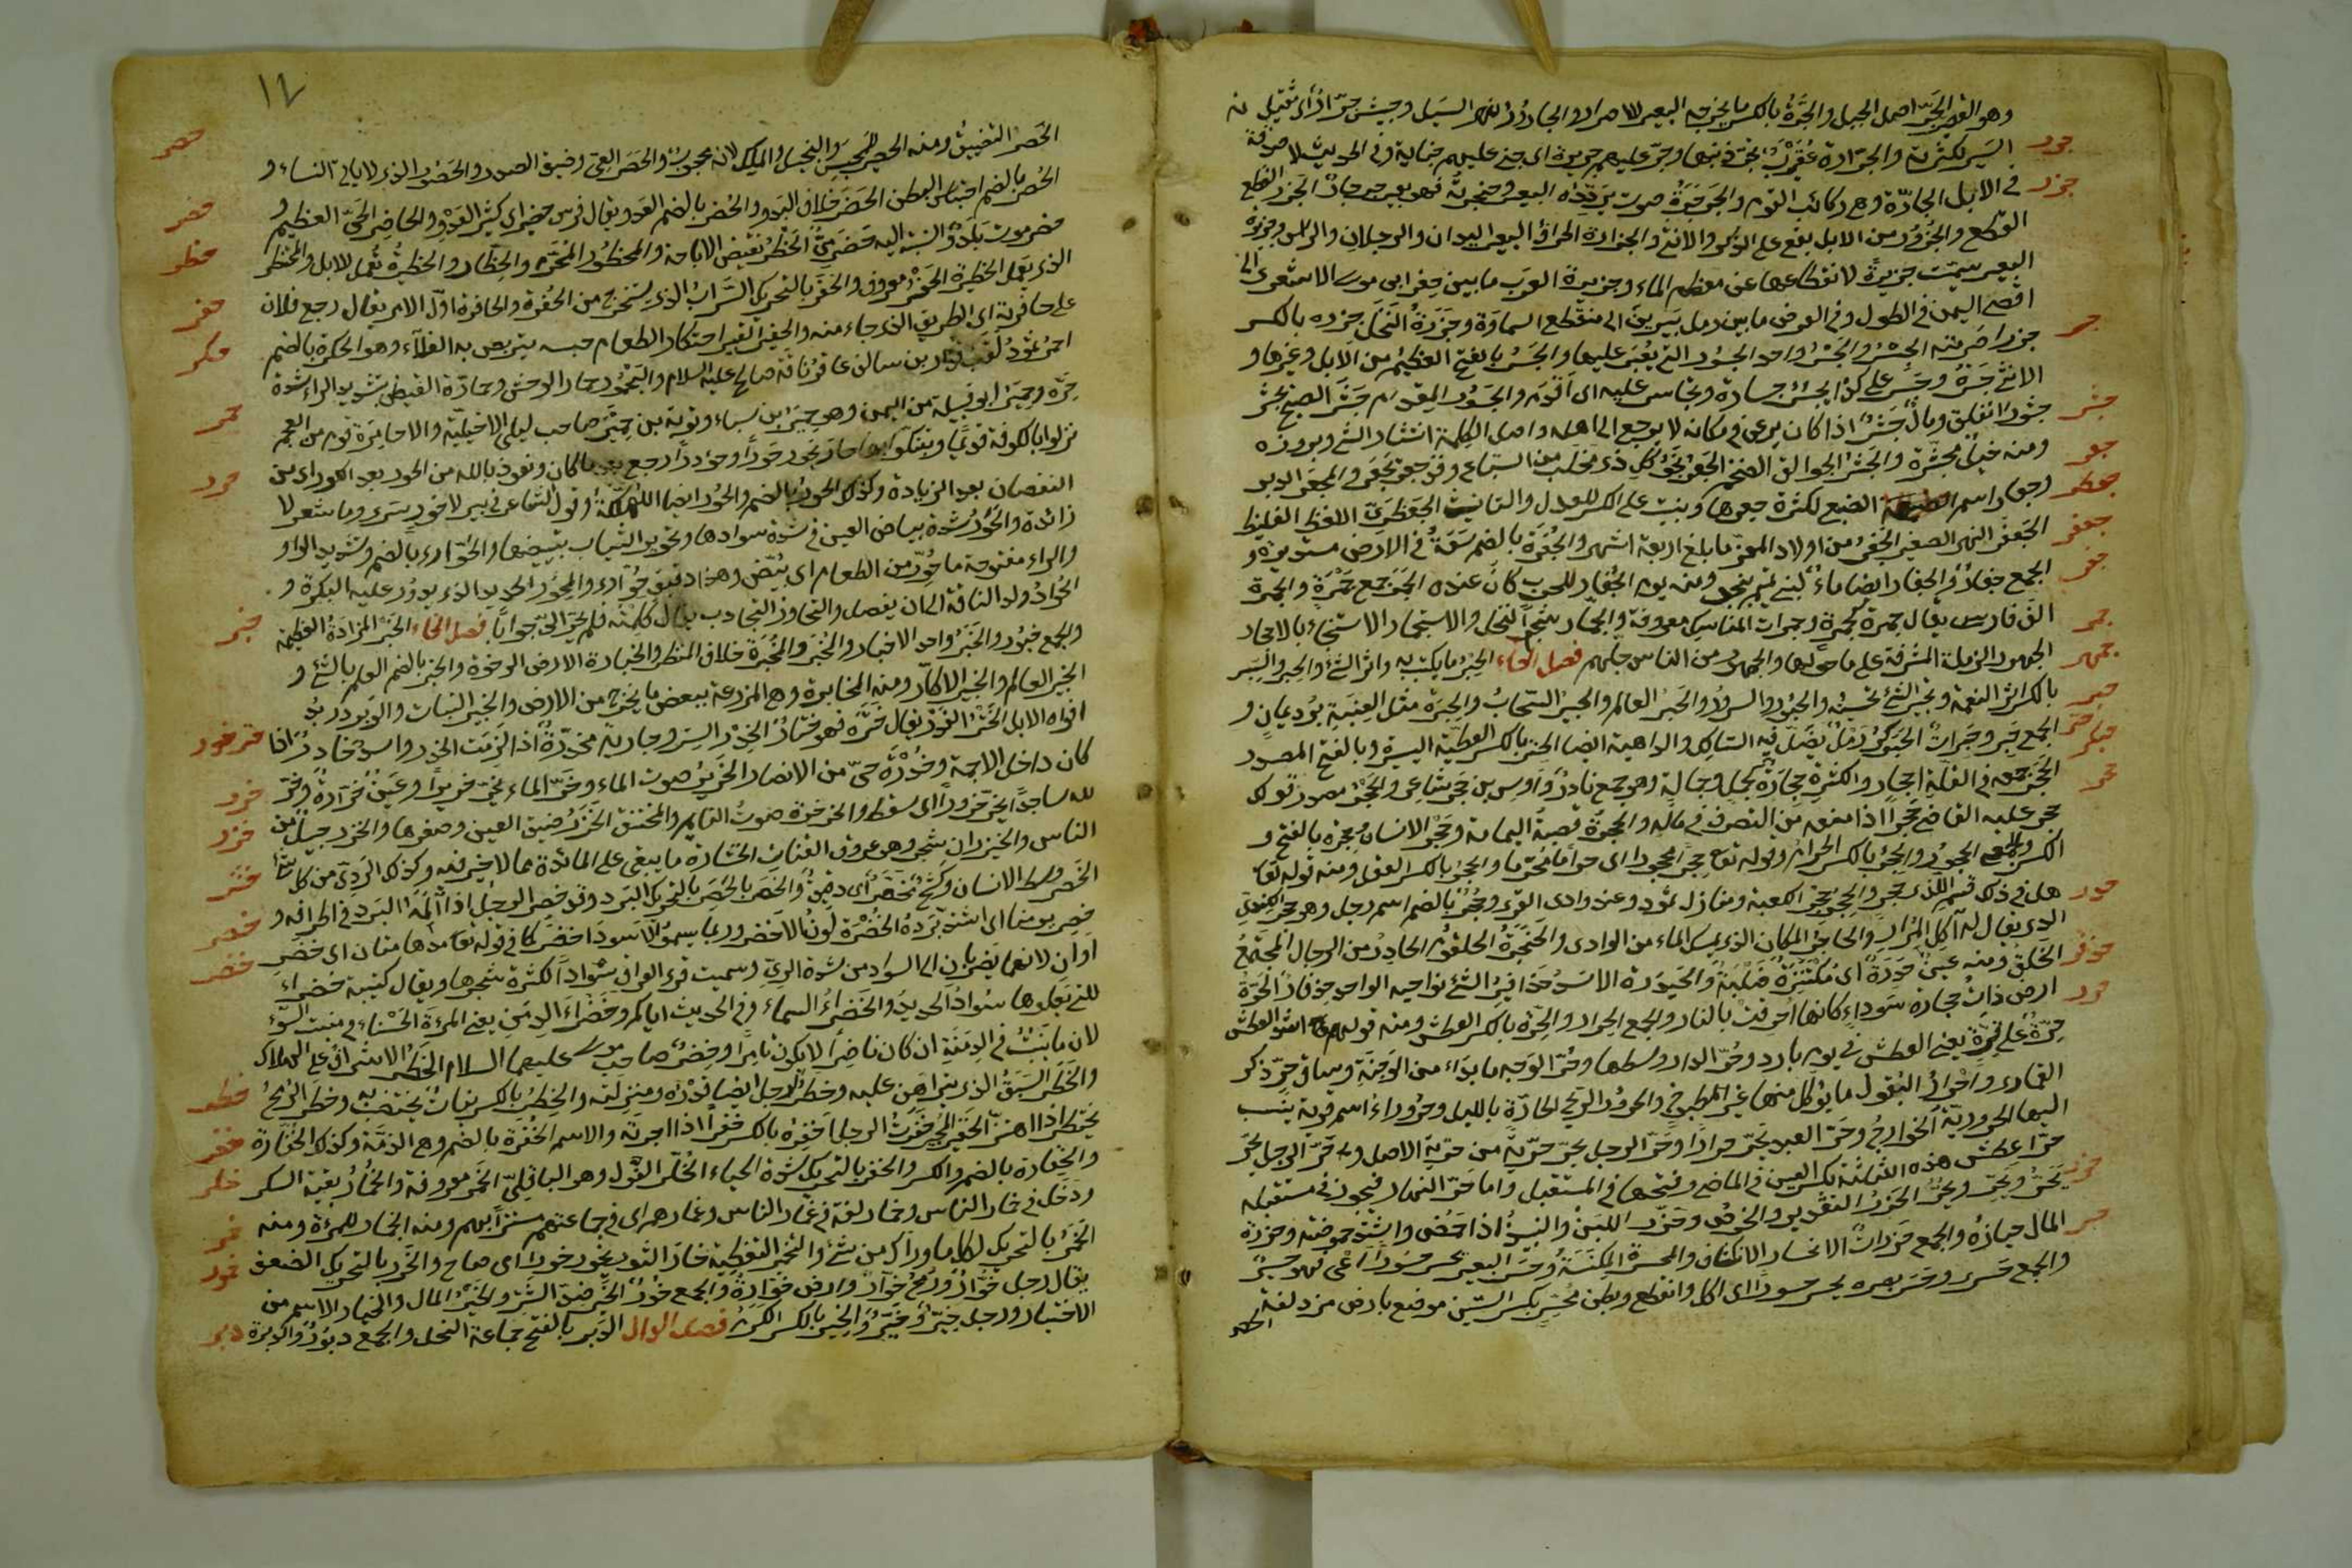 وهو القعر الجَرّ اصل الجبل والجِرَّةُ بالكسر ما يخرجه البعير للاجترار والجارور نهر السيل وجيش جرّار اى ثقيل
جرر السير لكثرته والجرّارة عُقَيْرب تجرّ ذنبها وجرّ عليهم جريرة اى جنى عليهم جناية وفى الحديث لا صدقة
جزر فى الابل الجارّة وهى ركائب القوم والجَرجَرةُ صوت يردّده البعير فى حنجرته فهو بعير جرجار الجَزر القطع
القطع والجَزُور من الابل يقع على الذكر والانثى والجزارة اطراف البعير اليدان والرجلان والراس وجزيرة
البعير سميت جزيرة لانقطاعها عن معظم الماء وجزيرة العرب ما بين حفر ابى موسى الاشعرى الى
اقصى اليمن فى الطول وفى العرض ما بين رمل يبرين الى منقطع السماوة وجَزَرَة النخل جزره بالكسر
جسر جزرا صَرمته الجِسْرُ والجَسْرُ واحد الجسور التى يُعبر عليها والجَسْرُ بالفتح العظيم من الابل وغيرها و
الانثى جَسْرَةٌ وجَسَر على كذا يجسُر جسارة وتجاسر عليه اى اقدم والجَسُور المِقدام جَشَرَ الصبح يجشر
جشر جشورا انفلق ومالٌ جَشَرٌ اذا كان يرعى فى مكانه لا يرجع الى اهله واصل الكلمة انتشار الشئ وبروزه
جعر ومنه خيلٌ مجشّرة والجَشِيرُ الجوالق الضخم الجَعْرُ نَجْوُ كلّ ذى مخلب من السباع وقد جعر يجعَر والمجعَر الدبر
جعظر وجعار اسم الضبع لكثرة جعرها وبنيت على الكسر للعدل والتانيث الجَعْظَرِىّ اللفظ الغليظ
جعفر الجَعفر النهر الصغير الجَفْر من اولاد المعز ما بلغ اربعة اشهر والجُفْرَةُ بالضم سَعَةٌ فى الارض مستديرة و
جفر الجمع جفار والجفار ايضا ماء لبنى تميم بنجد ومنه يوم الجفار للحرب كان عنده الجَمْرُ جمع جَمْرَةٍ والجمرة
جمر الف فارس يقال جمرة كجمرة وجمرات المناسك معروفة والجُمّار شحم النخل والاستجمار الاستنجاء بالاحجار
جمهر الجمهور الرملة المشرفة على ما حولها والجمهور من الناس جلّهم فصل الحاء الحِبر ما يكتب به واثر الشئ والحبر والسِبر
حبر بالكسر اثر النعمة وتحبير الشئ تحسينه والحبور السرور والحَبر العالم والحبير السحاب والحِبَرَة مثل العِنَبَة برد يمانٍ و
حبكر الجمع حِبَر وحِبَراتٌ الحَبَوكَرُ رملٌ يضلّ فيه السالك والداهية ايضا الحِتْر بالكسر العطية اليسيرة وبالفتح المصدر
حجر الحَجَر جمعه فى القلّة احجار والكثرة حجارة كجمل وجمالة وهو جمع نادر واوس بن حَجَر شاعر والحَجْر مصدر قولك
حجر عليه القاضى حَجْرا اذا منعه من التصرف فى ماله والحجر قصبة اليمامة وحَجر الانسان وحِجره بالفتح و
الكسر والجمع الحجور والحِجر بالكسر الحرام وقوله تعالى حِجرا محجورا اى حراما محرّما والحجر بالكسر العقل ومنه قوله تعالى
هل فى ذلك قسم لذى حجر والحِجر حِجر الكعبة ومنازل ثمود وعند وادى القرى وحُجْر بالضم اسم رجل وهو حجر الكندى
حدر الذى يقال له آكل المُرار والحاجر المكان الذى يمسك الماء من الوادى والحَنجَرَةُ الحلقوم الحادر من الرجال المجتمع
حذفر الخلق ومنه عينٌ حَدرَةٌ اى مكتنزة صُلبةٌ والحَيدَرة الاسد حذافير الشئ نواحيه الواحد حذفار الحَرّة
حرر ارض ذات حجارة سَوداءَ كانها اُحرقت بالنار والجمع الحِرار والحِرّة بالكسر العطش ومنه قولهم اشدّ العطش
حِرّةٌ على قِرّةٍ يعنى العطش فى يوم بارد وحُرّ الدار وسطها وحُرّ الوجه ما بدا من الوَجنة وساقُ حُرّ ذكر
القمارى واَحرارُ البُقول ما يؤكل منها غير المطبوخ والحرور الريح الحارّة بالليل وحَروراءُ اسم قرية ينسب
اليها الحروريّة الخوارج وحَرّ العبد يَحَرّ حرارا وحرّ الرجل يحرّ حُرّيةً من حرية الاصل وحَرّ الرجل يحَرّ
حرّا عطش هذه الثلاثة بكسر العين فى الماضى وفتحها فى المستقبل واما حرّ النهار فيجوز فى مستقبله
حزر يَحَرّ ويَحِرّ ويحُرّ الحَزْرُ التقدير والخرص وحَزَر اللبَنُ والنبيذُ اذا حمُض واشتدّ حموضته وحزرة
حسر المال خيارُه والجمع حَزَراتٌ الانحسار الانكشاف والمِحسرة المِكنَسَة وحَسَر البعير يحسِر حسورا اعيى فهو حسيرٌ
والجمع حَسرى وحسَر بصره يحسر حسورا اى كلّ وانقطع وبطن مُحسِّر بكسر السين موضع بارض مزدلفة
الحصر
١٢
حصر الحَصْرُ التضييق ومنه الحصير للمحبِس والبخيل والملك لانه محجوب والحَصَر العِىّ وضيق الصدر والحَصُور الذى لا ياتى النساء و
حضر الحُصْر بالضم احتباس البطن الحَضَر خلاف البَدو والحُضر بالضم العدو يقال فرس محضير اى كثير العَدْو والحاضِر الحَىّ العظيم و
حظر حضرموت بَلَدٌ والنسبة اليه حَضرَمىّ الحَظرُ نقيض الاباحة والمحظور المُحَرّم والحِظار والحظيرةُ تُعمل للابل والمُحتظِر
حفر الذى يعمل الحظيرة الحَفْر معروف والحَفَر بالتحريك التراب الذى يستخرج من الحُفرة والحافرة اوّل الامر يقال رجع فلان
حكر على حافرته اى الطريق الذى جاء منه والحفير القبر احتكار الطعام حبسه يتربص به الغلاء وهو الحُكرة بالضم
احمر ثمودَ لقب قُدار بن سالف عاقر ناقة صالح عليه السلام واليَحمُور حمار الوحش وحمارّة القيظ بتشديد الراء شدة
حمر حَرّه وحِميَرُ ابو قبيلة من اليمن وهو حِميَر بن سباء وتوبة بن حُميّر صاحب ليلى الاخيلية والاحامرة قوم من العجم
نزلوا بالكوفة قديما وبنكو حارَ يَحُور حَورا وحُؤورا رجع يقال ونعوذ بالله من الحور بعد الكور اى من
حور النقصان بعد الزيادة وكذلك الحورُ بالضم والحُور ايضا الهلكة وقول الشاعر فى بير لا حورٍ سرى وما شعر لا
زائدة والحَوَرُ شدة بياض العين فى شدة سوادها وتحوير الثياب تبييضها والحُوّارى بالضم وتشديد الواو
والراء مفتوحة ما حُوّر من الطعام اى بُيّض وهذا دقيق حُوّارى والمِحوَر الحديد الذى يدور عليه البكرة و
الحُوارُ ولد الناقة الى ان يفصل والتحاور التجاوب يقال كلّمته فلم يُحِر الىّ جوابًا فصل الخاء الخَبر المزادة العظيمة
خبر والجمع خبور والخَبَرُ واحد الاخبار والخُبر والمُخبَرة خلاف المنظر والخَبار الارض الرخوة والخُبر بالضم العلم بالشئ و
الخبير العالم والخبير الاكّار ومنه المخابرة وهى المزارعة ببعض ما يخرج من الارض والخبير النبات والوَبَر وزبد
ختر خدر افواه الابل الخَتر الغدر يقال خَتَره فهو خَتّارٌ الخِدر السِتر وجارية مخدّرة اذا لزمت الخِدر واسد خادر اذا
كان داخل الاجمة وخُدْرَةُ حىّ من الانصار الخَرير صوت الماء وخَرّ الماء يخِرّ خريرا وعينٌ خَرّارةٌ وخرّ
خرر لله ساجدًا يخِرّ خرورا اى سقط والخرخرة صوت النائم والمختنق الخَزَرُ ضيق العين وصغرها والخزر جيلٌ من
خزر الناس والخيزران شجر وهو عروق القناة الخشارة ما يبقى على المائدة مما لا خير فيه وكذلك الردى من كل شئ
خشر الخَصر وسط الانسان وكَشْحٌ مُخَصّرٌ اى دقيق والخَصَر بالتحريك البَرد وقد خصِر الرجل اذا آلمه البَرد فى اطرافه و
خصر خصِر يومنا اى اشتدّ بَرْدُهُ الخُضْرَة لَونُ الاخضر وربما يسمى الاسود اخضر كما فى قوله تعالى مُدهامّتان اى خضر
خضر اوان لانهما يضربان الى السواد من شدة الرىّ وسميت قرى العراق سَوادًا لكثرة شجرها ويقال كتيبة خضراء
للتى يعلوها سَوادُ الحديد والخضراءُ السماء وفى الحديث اياكم وخَضراءَ الدِمَن يعنى المرءَة الحَسناء فى منبت السَوء
لان ما ينبُتُ فى الدِمنة ان كان ناضرا لا يكون ثامرا وخضِر صاحب موسى عليهما السلام الخَطَرُ الاشراف على الهلاك
خطر والخَطَر السَبَقُ الذى يتراهن عليه وخَطَر الرجل ايضا قَدْره ومنزلته والخِطر بالكسر نبات يُختضب به وخطَر الرُمح
خفر يخطر اذا اهتزّ الخفير المجير خَفَرتُ الرجل اخفِره بالكسر خَفْرا اذا اجرته والاسم الخُفرَة بالضم وهى الذمّة وكذلك الخُفارة
خلر والخِفارة بالضم والكسر والخَفَر بالتحريك شدة الحياء الخُلَّر الفُول وهو الباقلىّ الخمر معروفة والخُمارُ بقية السكر
خمر ودَخل فى خمار الناس وخمار لغة فى غمار الناس وغمارهم اى فى جماعتهم مستترا بهم ومنه الخِمار للمرءة ومنه
الخَمَرُ بالتحريك لكل ما وراك من شئ والتخمير التغطية خار الثور يخور خورا اى صاح والخَوَر بالتحريك الضعف
خور يقال رجل خوّارٌ ورُمحٌ خوّارٌ وارض خوّارةٌ والجمع خُورٌ الخَير ضدّ الشرّ والخَيْرُ المال والخيار الاسم من
دبر الاختيار ورجل خَيّرٌ وخَيْرٌ والخِير بالكسر الكرم فصل الدال الدَبر بالفتح جماعة النحل والجمع دبور والدَبرة